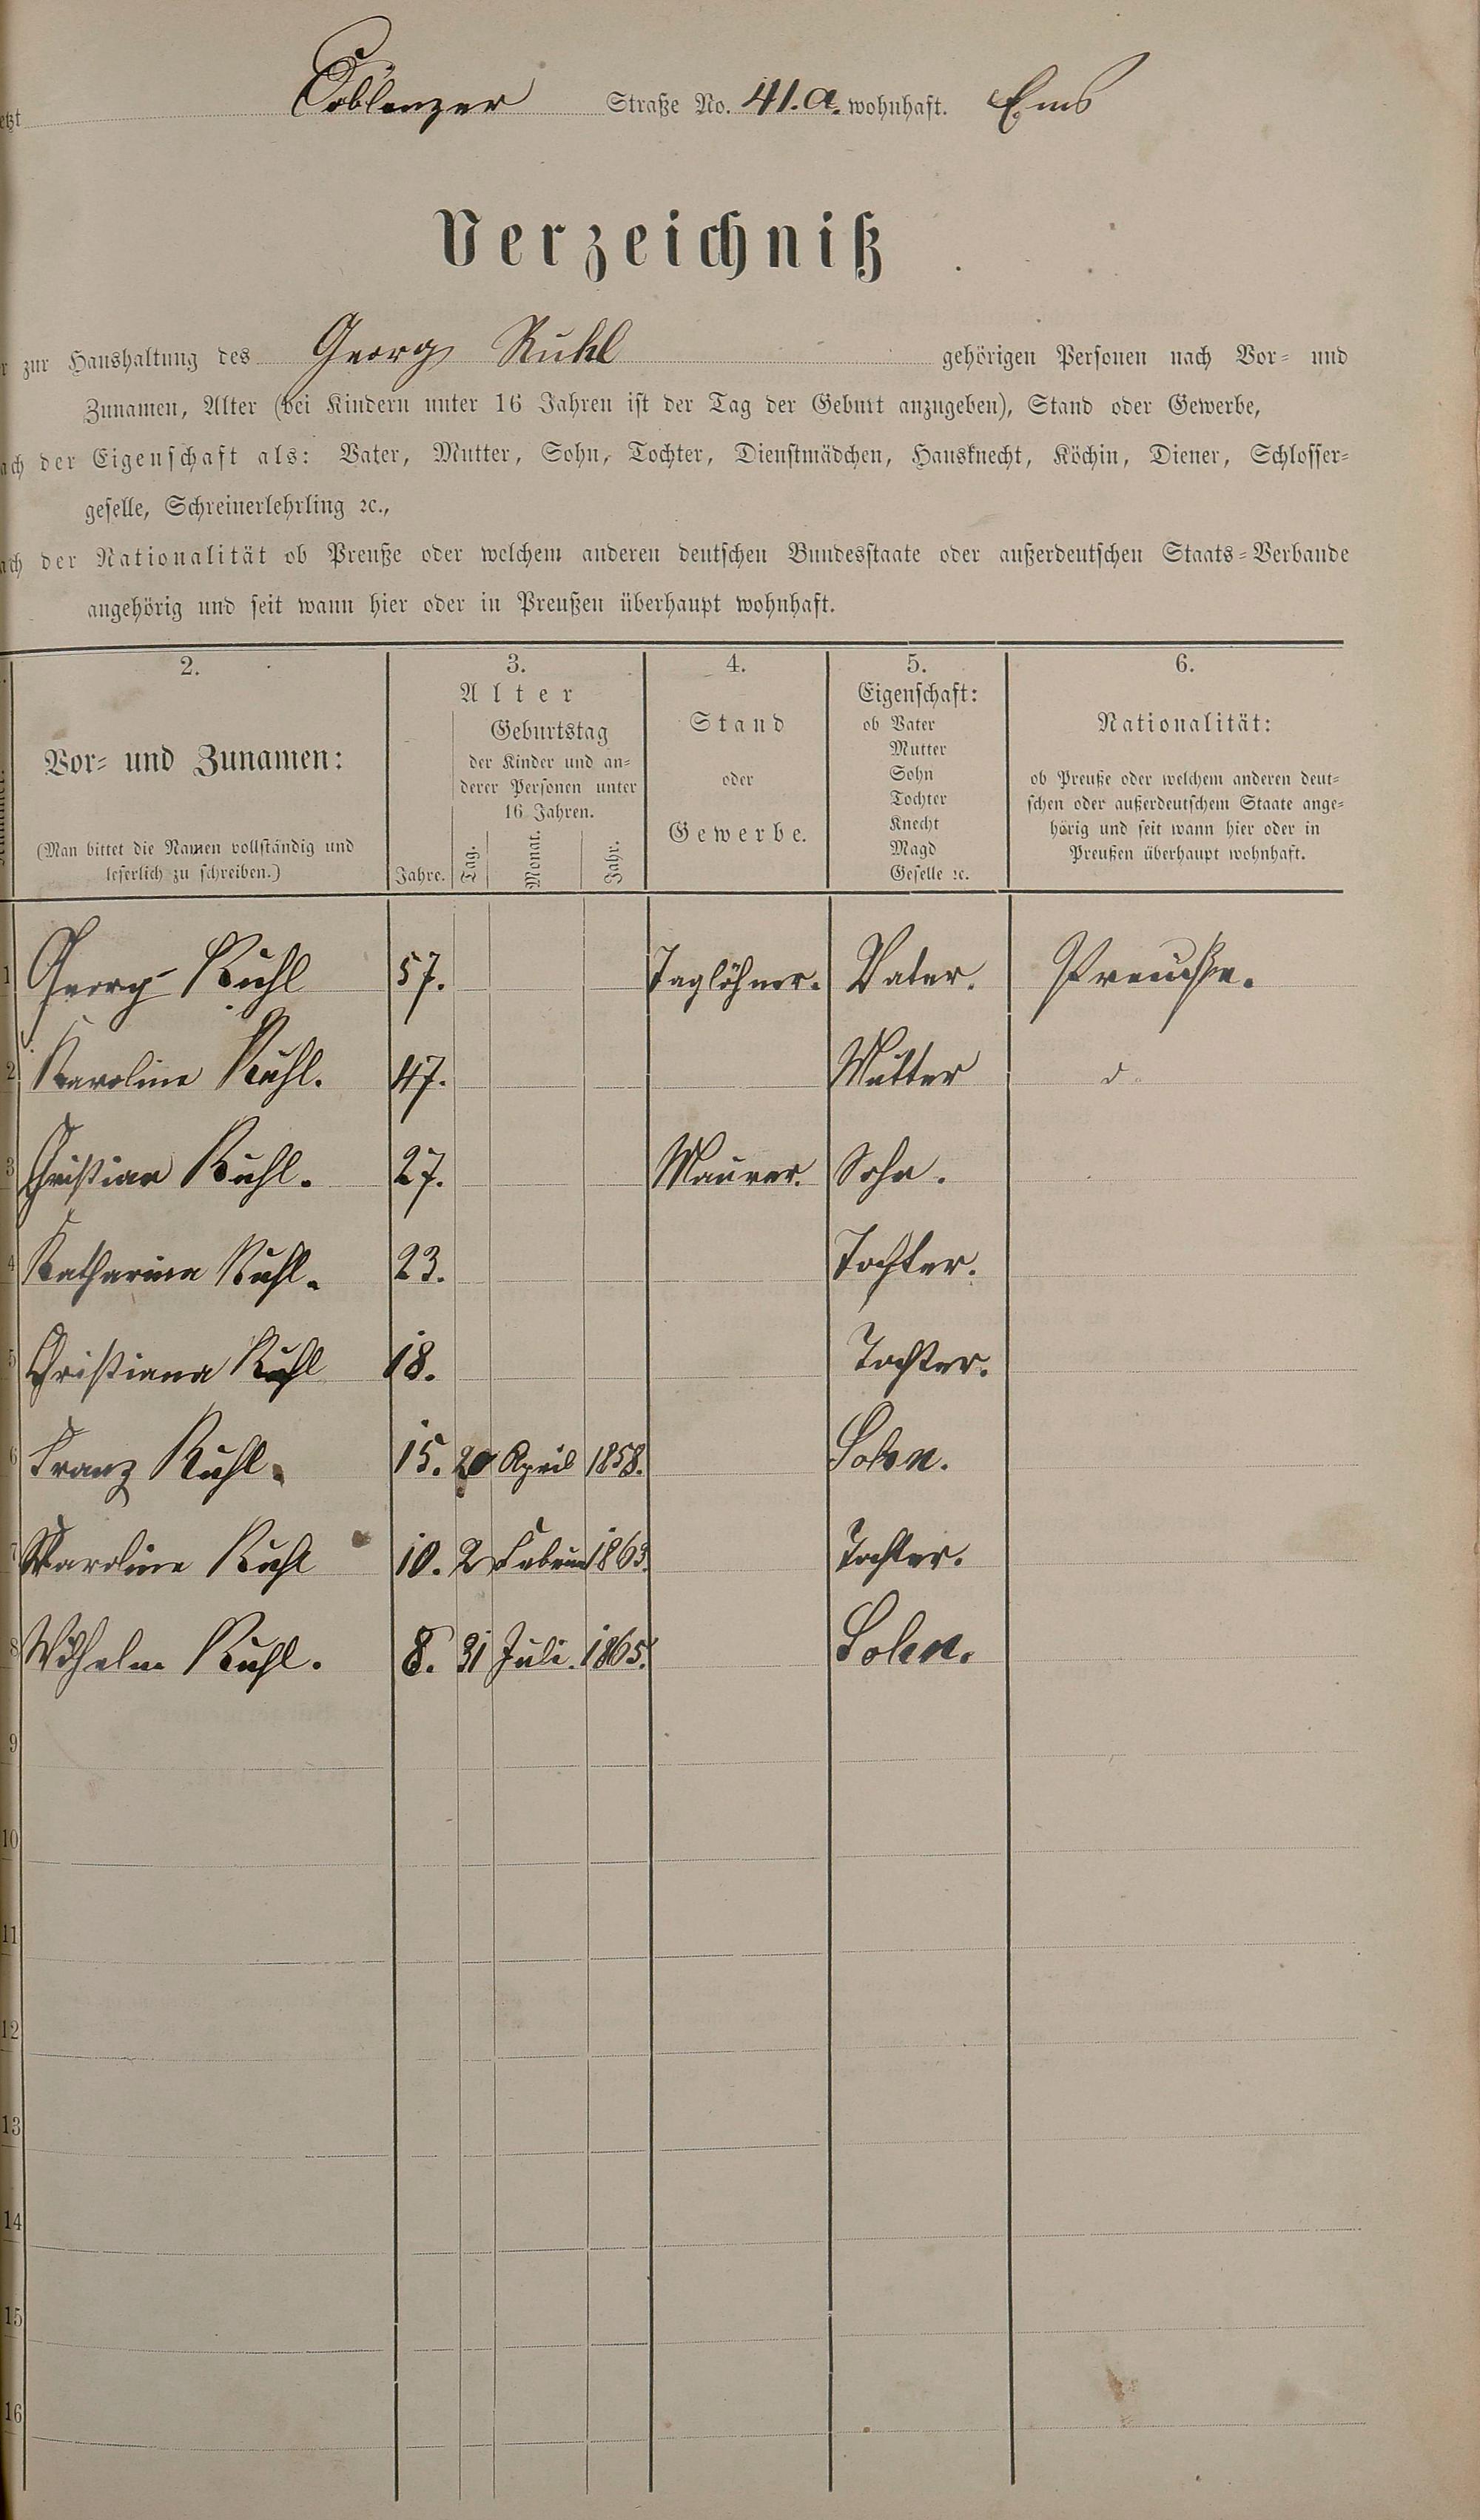 etzt Coblenzer Straße No. 41.a. wohnhaft. Ems
Verzeichniß
r zur Haushaltung des Georg Ruhl gehörigen Personen nach Vor- und
Zunamen, Alter (bei Kindern unter 16 Jahren ist der Tag der Geburt anzugeben), Stand oder Gewerbe,
ach der Eigenschaft als: Vater, Mutter, Sohn, Tochter, Dienstmädchen, Hausknecht, Köchin, Diener, Schlosser-
geselle, Schreinerlehrling ꝛc.,
ach der Nationalität ob Preuße oder welchem anderen deutschen Bundesstaate oder außerdeutschen Staats-Verbande
angehörig und seit wann hier oder in Preußen überhaupt wohnhaft.
2. 3. 4. 5. 6.
Vor- und Zunamen:
(Man bittet die Namen vollständig und
leserlich zu schreiben.)
Alter
Jahre.
Geburtstag
der Kinder und an-
derer Personen unter
16 Jahren.
Tag. Monat. Jahr.
Stand
oder
Gewerbe.
Eigenschaft:
ob Vater
Mutter
Sohn
Tochter
Knecht
Magd
Geselle ꝛc.
Nationalität:
ob Preuße oder welchem anderen deut-
schen oder außerdeutschem Staate ange-
hörig und seit wann hier oder in
Preußen überhaupt wohnhaft.
1 Georg Ruhl 57. Taglöhner. Vater. Preuße.
2 Karoline Ruhl. 47. Mutter d.
3 Christian Ruhl. 27. Maurer. Sohn.
4 Katharina Ruhl. 23. Tochter.
5 Christiana Ruhl 18. Tochter.
6 Franz Ruhl. 15. 20 April 1858. Sohn.
7 Karoline Ruhl 10. 2 Februar 1863. Tochter.
8 Wilhelm Ruhl. 8. 31 Juli. 1865. Sohn.
9
10
11
12
13
14
15
16